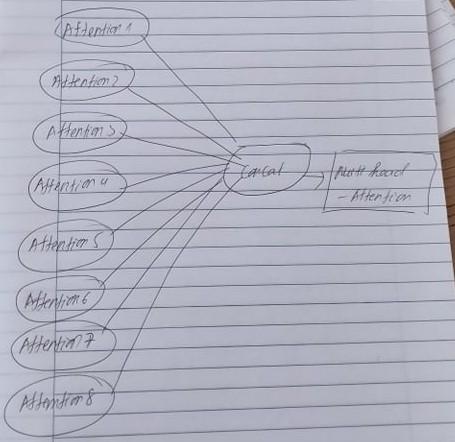 Attention 1
Attention 2
Attention 3
Attention 4
Attention 5
Attention 6
Attention 7
Attention 8
Concat
Multi head
- Attention